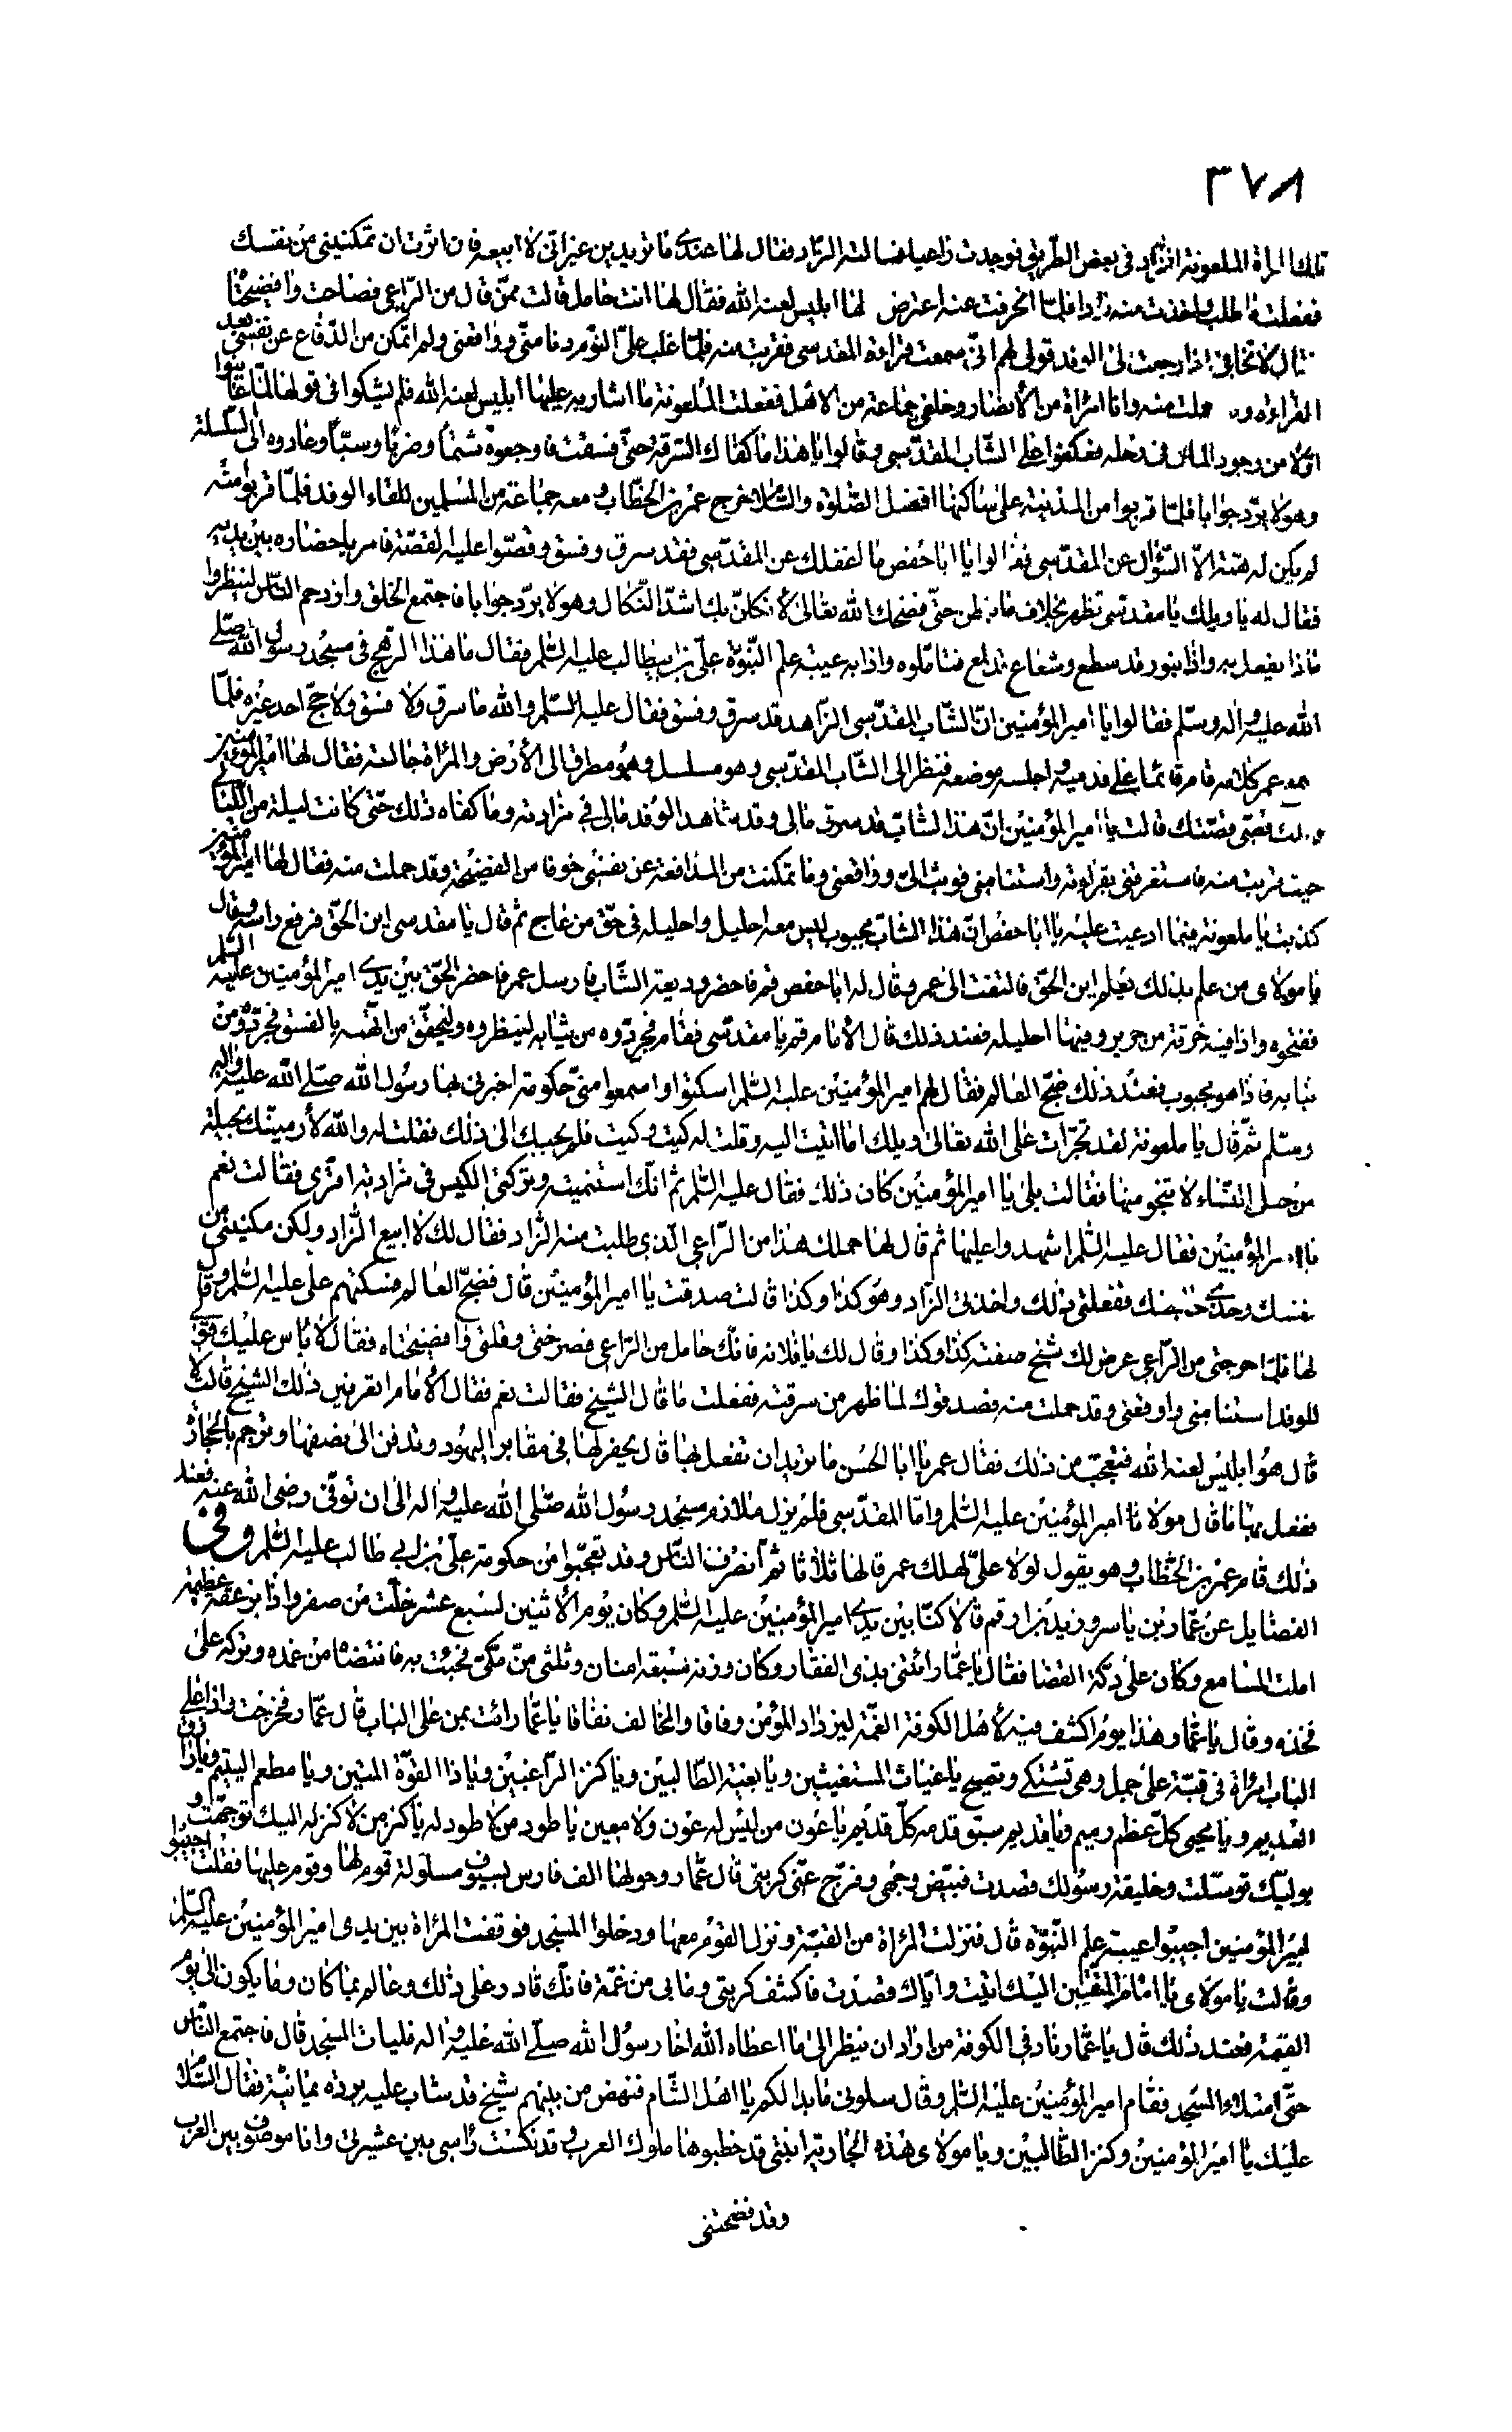 ٣٧٨
تلك المرأة الملعونة الزاد فى بعض الطريق فوجدت راعيا فسالته الزاد فقال لها عندى ما تريدين غير انى لا ابيعه فان اثرت ان تمكنينى من نفسك
ففعلت ما طلب واخذت منه زادا فلما انحرفت عنه اعترض لها ابليس لعنه الله فقال لها انت حامل قالت ممن قال من الراعى فصاحت وا فضيحتا
فقال لا تخافى اذا رجعت الى الوفد قولى لهم انى سمعت قراءة المقدسى فقربت منه فلما غلب على النوم دنا منى وواقعنى ولم اتمكن من الدفاع عن نفسى بعد
القراءة وقد حملت منه وانا امرأة من الأنصار وخلفى جماعة من الاهل ففعلت الملعونة ما اشار به عليها ابليس لعنه الله فلم يشكوا فى قولها لما عاينوا
اولا من وجود المال فى رحله فعكفوا على الشاب المقدسى وقالوا يا هذا ما كفاك السرقة حتى فسقت فاوجعوه شتما وضربا وسبا وعادوه الى السلسلة
وهو لا يرد جوابا فلما قربوا من المدينة على ساكنها افضل الصلوة والسلام خرج عمر بن الخطاب ومعه جماعة من المسلمين للقاء الوفد فلما قربوا منه
لم يكن له همة الا السؤال عن المقدسى فقالوا يا ابا حفص ما اغفلك عن المقدسى فقد سرق وفسق وقصوا عليه القصة فامر باحضاره بين يديه
فقال له يا ويلك يا مقدسى تظهر بخلاف ما تبطن حتى فضحك الله تعالى لأنكلن بك اشد النكال وهو لا يرد جوابا فاجتمع الخلق وازدحم الناس لينظروا
ماذا يفعل به واذا بنور قد سطع وشعاع قد لمع فتأملوه واذا به عيبة علم النبوة على بن ابيطالب عليه السلم فقال ما هذا الرهج فى مسجد رسول الله صلى
الله عليه وآله وسلم فقالوا يا امير المؤمنين ان الشاب المقدسى الزاهد قد سرق وفسق فقال عليه السلم والله ما سرق ولا فسق ولا حج احد غيره فلما
سمع عمر كلامه قام قائما على قدميه واجلسه موضعه فنظر الى الشاب المقدسى وهو مسلسل وهو مطرق الى الأرض والمرأة جالسة فقال لها امير المؤمنين
ويلك قصى قصتك قالت يا امير المؤمنين ان هذا الشاب قد سرق مالى وقد شاهد الوفد مالى فى مزادته وما كفاه ذلك حتى كانت ليلة من الليالى
حيث قربت منه فاستغرقنى بقراءته واستنامنى فوثب الى وواقعنى وما تمكنت من المدافعة عن نفسى خوفا من الفضيحة وقد حملت منه فقال لها امير المؤمنين
كذبت يا ملعونة فيما ادعيت عليه يا ابا حفص ان هذا الشاب مجبوب ليس معه احليل واحليله فى حق من عاج ثم قال يا مقدسى اين الحق فرفع راسه وقال
يا مولاى من علم بذلك يعلم اين الحق فالتفت الى عمر وقال له ابا حفص قم فاحضر وديعة الشاب فارسل عمر فاحضر الحق بين يدى امير المؤمنين عليه السلم
ففتحوه واذا فيه خرقة من حرير وفيها احليله فعند ذلك قال الأمام قم يا مقدسى فقام فجردوه من ثيابه لينظروه وليتحقق من اتهمه بالفسق فجردوه من
ثيابه فاذا هو مجبوب فعند ذلك ضج العالم فقال لهم امير المؤمنين عليه السلم اسكتوا واسمعوا منى حكومة اخبرنى بها رسول الله صلى الله عليه واله
وسلم ثم قال يا ملعونة لقد تجرأت على الله تعالى ويلك اما اتيت اليه وقلت له كيت وكيت فلم يجيبك الى ذلك فقلت له والله لأرمينك بحيلة
من حيل النساء لا تنجو منها فقالت بلى يا امير المؤمنين كان ذلك فقال عليه السلم ثم انك استنميته وتركتى الكيس فى مزادته اقرى فقالت نعم
يا امير المؤمنين فقال عليه السلم اشهدوا عليها ثم قال لها حملك هذا من الراعى الذى طلبت منه الزاد فقال لك لا ابيع الزاد ولكن مكنينى من
نفسك وخذى حاجتك ففعلتى ذلك واخذتى الزاد وهو كذا وكذا قالت صدقت يا امير المؤمنين قال فضج العالم فسكتهم على عليه السلم وقال
لها فلما خرجتى من الراعى عرض لك شيخ صفته كذا وكذا وقال لك يا فلانة فانك حامل من الراعى فصرختى وقلتى وا فضيحتاه فقال لا بأس عليك قولى
للوفد استنامنى وواقعنى وقد حملت منه فصدقوك لما ظهر من سرقته ففعلت ما قال الشيخ فقالت نعم فقال الأمام اتعرفين ذلك الشيخ قالت لا
قال هو ابليس لعنه الله فتعجب من ذلك فقال عمر يا ابا الحسن ما تريد ان تفعل بها قال يحفر لها فى مقابر اليهود وتدفن الى نصفها وترجم بالحجارة
ففعل بها ما قال مولانا امير المؤمنين عليه السلم واما المقدسى فلم يزل ملازم مسجد رسول الله صلى الله عليه وآله الى ان توفى رضى الله عنه فعند
ذلك قام عمر بن الخطاب وهو يقول لولا على لهلك عمر قالها ثلاثا ثم انصرف الناس وقد تعجبوا من حكومة على بن ابى طالب عليه السلم وفى
الفضايل عن عمار بن ياسر وزيد بن ارقم قالا كنا بين يدى امير المؤمنين عليه السلم وكان يوم الأثنين لسبع عشر خلت من صفر واذا بزعقة عظيمة
املت المسامع وكان على دكة القضا فقال يا عمار ائتنى بذى الفقار وكان وزنه سبعة امنان وثلثى من مكى فجئت به فانتضاه من غمده وتركه على
فخذه وقال يا عمار هذا يوم اكشف فيه لأهل الكوفة الغمة ليزداد المؤمن وفاقا والمخالف نفاقا يا عمار ائت بمن على الباب قال عمار فخرجت واذا على
الباب امرأة فى قبة على جمل وهى تشتكى وتصيح يا غياث المستغيثين ويا بغية الطالبين ويا كنز الراغبين ويا ذا القوة المتين ويا مطعم اليتيم ويا رازق
العديم ويا محيى كل عظم رميم ويا قديم سبق قدمه كل قديم يا عون من ليس له عون ولا معين يا طود من لا طود له يا كنز من لا كنز له اليك توجهت و
بوليك توسلت وخليفة رسولك قصدت فبيض وجهى وفرج عنى كربتى قال عمار وحولها الف فارس بسيوف مسلولة قوم لها وقوم عليها فقلت اجيبوا
امير المؤمنين اجيبوا عيبة علم النبوة قال فنزلت المرأة من القبة ونزل القوم معها ودخلوا المسجد فوقفت المرأة بين يدى امير المؤمنين عليه السلم
وقالت يا مولاى يا امام المتقين اليك اتيت واياك قصدت فاكشف كربتى وما بى من غمة فانك قادر على ذلك وعالم بما كان وما يكون الى يوم
القيمة فعند ذلك قال يا عمار ناد فى الكوفة من اراد ان ينظر الى ما اعطاه الله اخا رسول الله صلى الله عليه واله فليات المسجد قال فاجتمع الناس
حتى امتلاء المسجد فقام امير المؤمنين عليه السلم وقال سلونى ما بدا لكم يا اهل الشام فنهض من بينهم شيخ قد شاب عليه بردة يمانية فقال السلام
عليك يا امير المؤمنين وكنز الطالبين ويا مولاى هذه الجارية ابنتى قد خطبوها ملوك العرب وقد نكست راسى بين عشيرتى وانا موصوف بين العرب
وقد فضحتنى